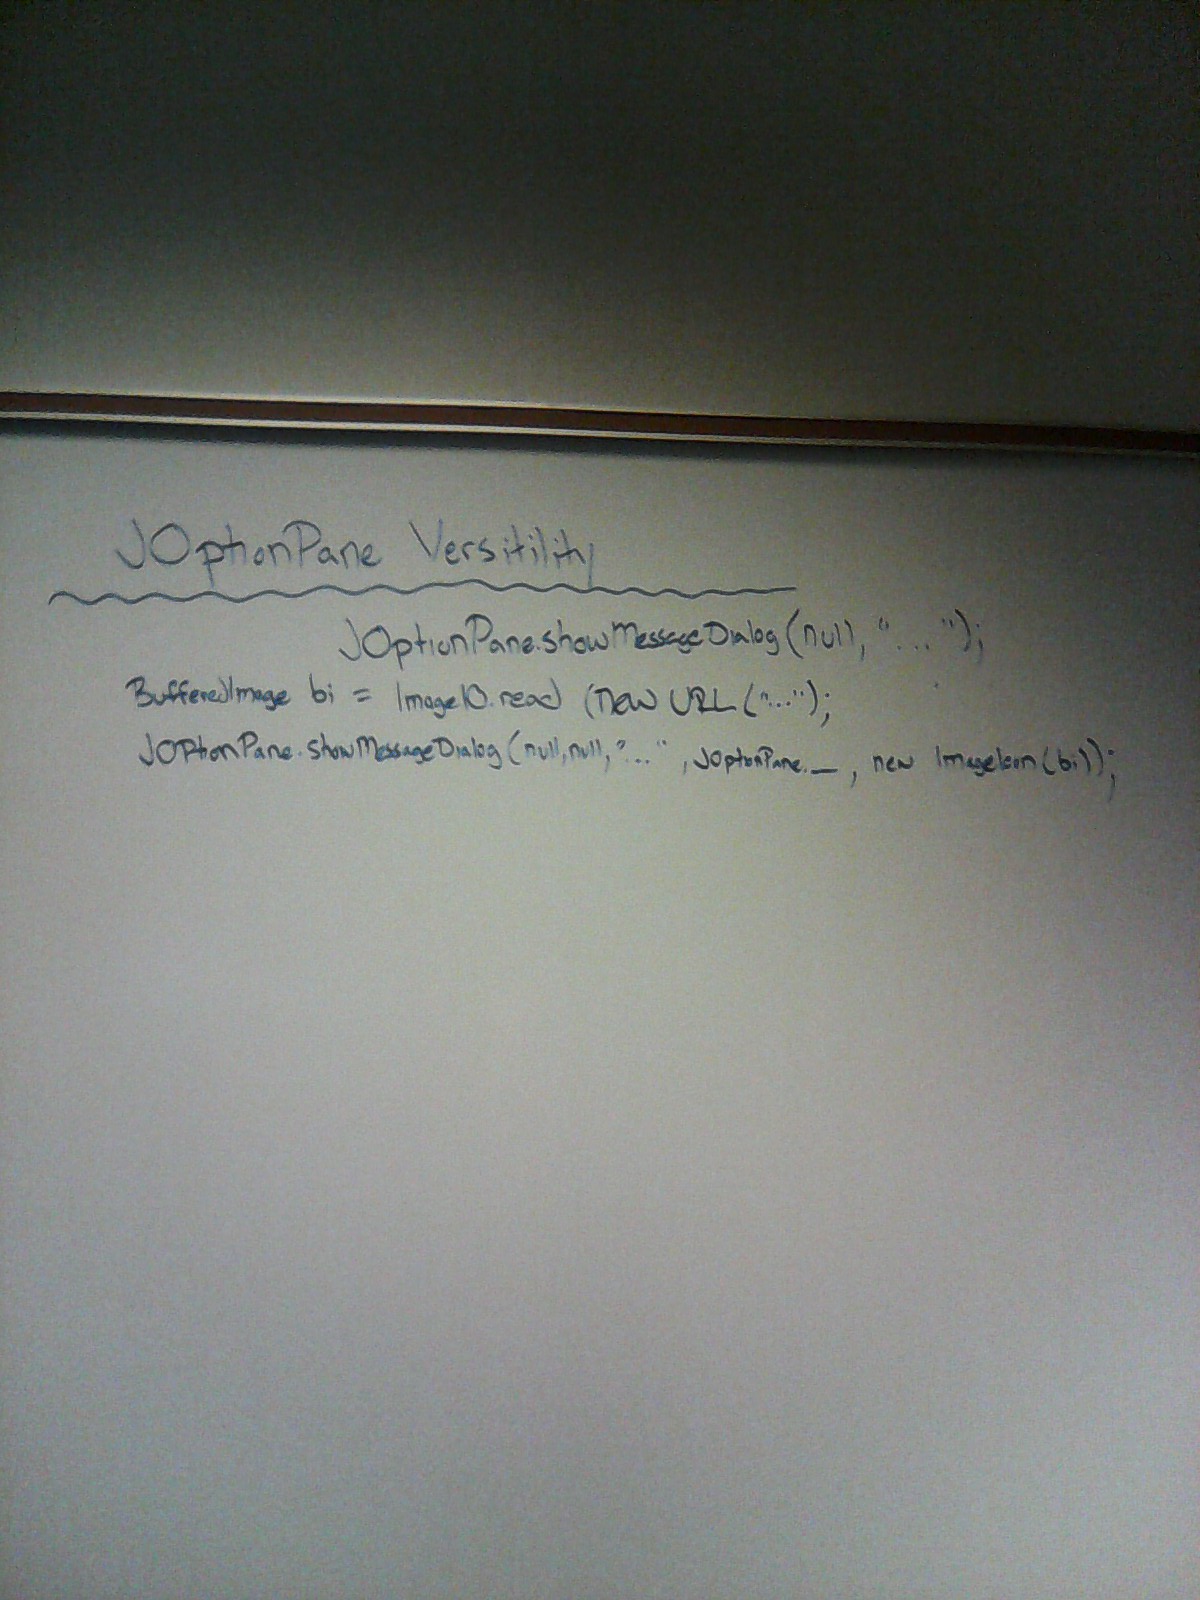 JOptionPane Versitility
JOptionPane.showMessageDialog(null, "...");
BufferedImage bi = ImageIO.read (new URL("...");
JOptionPane.showMessageDialog(null,null,"...", JOptionPane.__, new ImageIcon(bi));